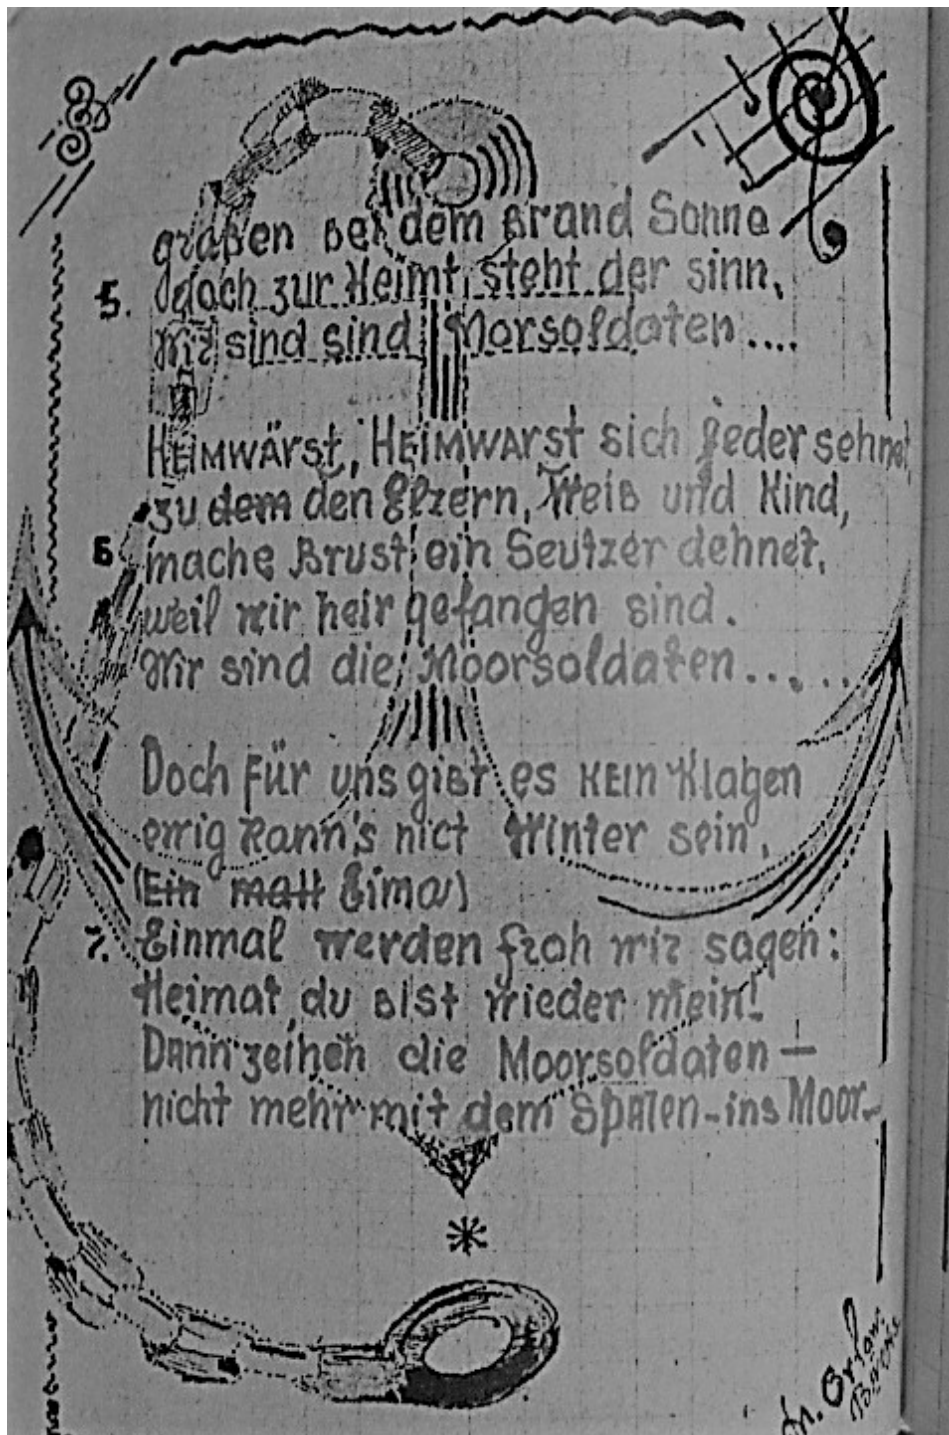 graben bei dem Brand Sonne
5. doch zur Heimt steht der sinn,
Wir sind sind Morsoldaten....
HEIMWÄRST, HEIMWARST sich jeder sehnet,
zu dem den Elrern, Weib und Kind,
6 mache Brust ein Seutzer dehnet,
weil wir heir gefangen sind.
Wir sind die Moorsoldaten......
Doch Für uns gibt es KEIN Klagen
ewig kann's nict Winter sein,
(Ein matt Eima)
7. Einmal werden froh wir sagen:
Heimat, du bist wieder mein!
DANN zeihen die Moorsoldaten —
nicht mehr mit dem SPATEN - ins Moor-
*